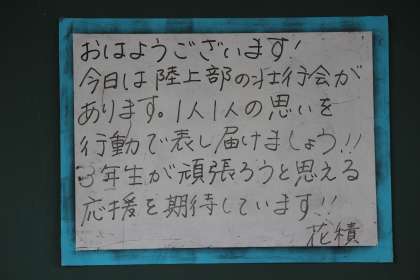 おはようございます!
今日は陸上部の壮行会が
あります。1人1人の思いを
行動で表し届けましょう!!
3年生が頑張ろうと思える
応援を期待しています!!
花積